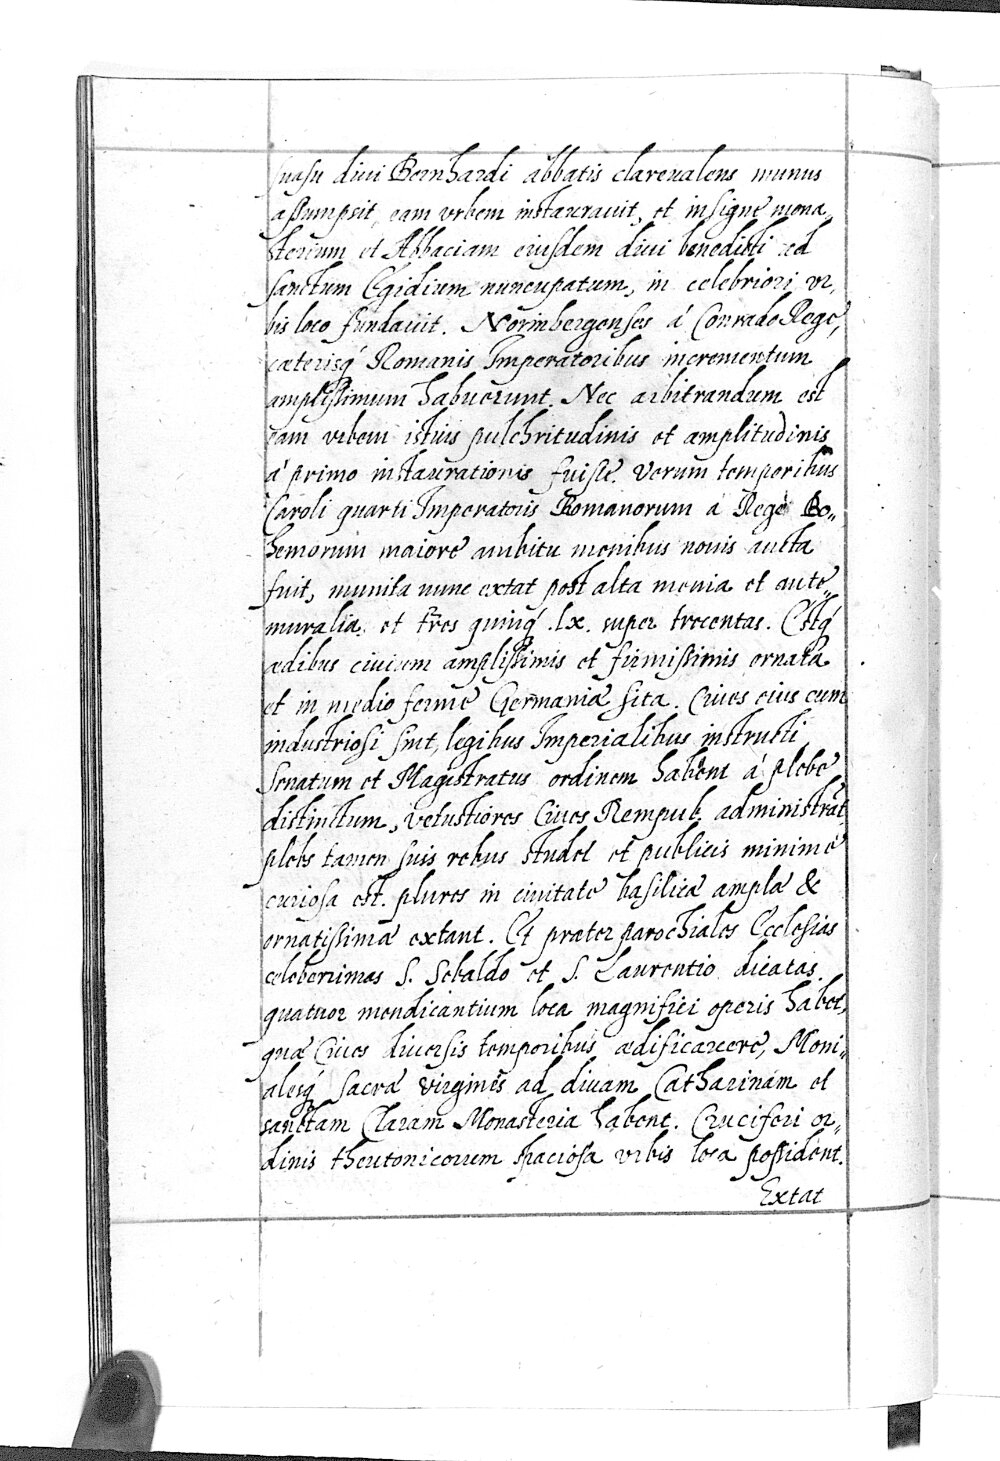 suasu diui Bernhardi abbatis clareualens munus
assumpsit, eam vrbem instaurauit, et insigne mona„
sterium et Abbaciam eiusdem diui benedicti ad
sanctum Egidium nuncupatum, in celebriori vr„
bis loco fundauit. Norinbergenses á Conrado Rege,
cæterisq́ Romanis Imperatoribus incrementum
amplissimum habuerunt. Nec arbitrandum est
eam vrbem istius pulchritudinis et amplitudinis
á primo instaurationis fuisse. Verum temporibus
Caroli quarti Imperatoris Romanorum á Rege Bo„
hemorum maiore ambitu menibus nouis aucta
fuit, munita nunc extat post alta menia et ante„
muralia. et tr̃es quinq́ .lx. super trecentas. Estq́
ædibus ciuium amplissimis et firmissimis ornata
et in medio ferme Germaniæ sita. Ciues eius cum
industriosi sint, legibus Imperialibus instructi
Senatum et Magistratus ordinem habent á plebe
distinctum, vetustiores Ciues Rempub. administrãt
plebs tamen suis rebus studet et publicis minimé
curiosa est. plures in ciuitate basilicæ amplæ &
ornatissimæ extant. Et præter parochiales Ecclesias
celeberrimas S. Sebaldo et S. Laurentio dicatas.
quatuor mendicantium loca magnifici operis habet,
quæ Ciues diuersis temporibus ædificarcere, Moni„
alesq́ sacræ virgines ad diuam Catharinam et
sanctam Claram Monasteria habent. Cruciferi or„
dinis theutonicorum spaciosa vrbis loca possident.
Extat